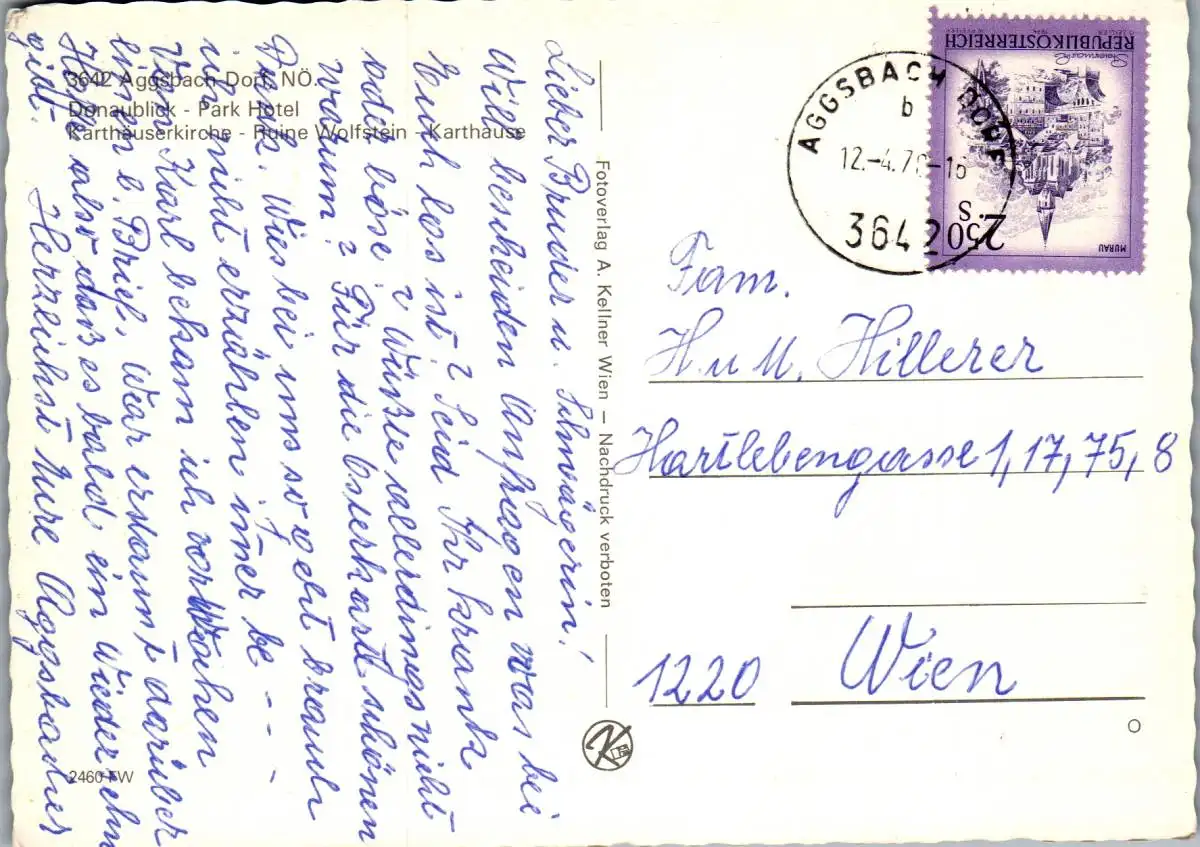 3642 Aggsbach-Dorf, NÖ.
Donaublick - Park Hotel
Karthäuserkirche - Ruine Wolfstein - Karthause
Lieber Bruder u. Schwägerin!
Will bescheiden Anfragen was bei
Euch los ist? Seid Ihr krank
oder böse? Wüßte allerdings nicht
warum? Für die Osterkarte schönen
Dank. Wies bei uns so geht brauch
ich nicht erzählen imer be - - -
Von Karl bekam ich vor Wochen
einen l. Brief. War erstaunt darüber
Hoffe also daß es bald ein Wiedersehn
gibt. Herzlichst Eure Aggsbacher
2460 FW
Fotoverlag A. Kellner Wien — Nachdruck verboten
K
AGGSBACH DORF
b
12.-4.7 -16
3642
REPUBLIK ÖSTERREICH
Steiermark
2.50
S
MURAU
Fam.
H. u M. Hillerer
Hartlebengasse 1, 17, 75, 8
1220 Wien